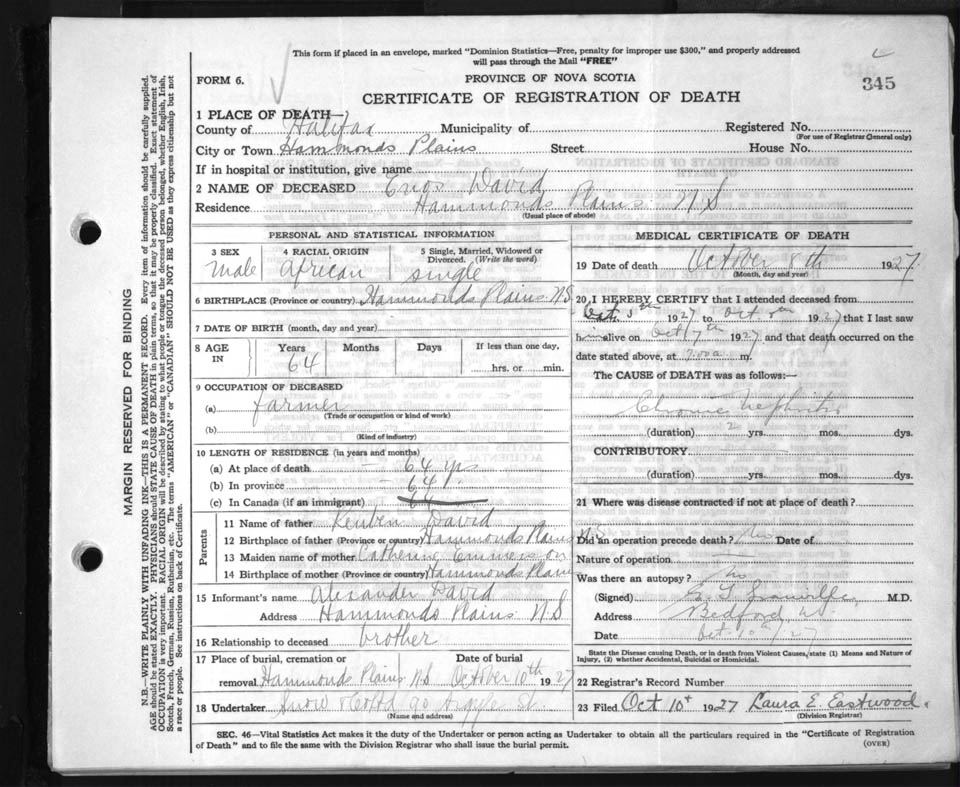 This form if placed in an envelope, marked "Dominion Statistics—Free, penalty for improper use $300," and properly addressed
will pass through the Mail "FREE"
FORM 6.
PROVINCE OF NOVA SCOTIA
345
CERTIFICATE OF REGISTRATION OF DEATH
1 PLACE OF DEATH—
County of Halifax Municipality of Registered No.
(For use of Registrar General only)
City or Town Hammonds Plains Street House No.
If in hospital or institution, give name
2 NAME OF DECEASED Enos David
Residence Hammonds Plains N.S
(Usual place of abode)
PERSONAL AND STATISTICAL INFORMATION
3 SEX 4 RACIAL ORIGIN 5 Single, Married, Widowed or
Divorced. (Write the word)
male African single
6 BIRTHPLACE (Province or country) Hammonds Plains N.S
7 DATE OF BIRTH (month, day and year)
8 AGE IN Years Months Days If less than one day,
64 hrs. or min.
9 OCCUPATION OF DECEASED
(a) farmer
(Trade or occupation or kind of work)
(b)
(Kind of industry)
10 LENGTH OF RESIDENCE (in years and months)
(a) At place of death — 64 yrs
(b) In province — 64
(c) In Canada (if an immigrant) 64
Parents
11 Name of father Reuben David
12 Birthplace of father (Province or country) Hammonds Plains
13 Maiden name of mother Catherine Emmerson
14 Birthplace of mother (Province or country) Hammonds Plains
15 Informant's name Alexander David
Address Hammonds Plains N.S
16 Relationship to deceased brother
17 Place of burial, cremation or Date of burial
removal Hammonds Plains N.S October 10th 1927
18 Undertaker Snow & Co Ltd 90 Argyle St.
(Name and address)
MEDICAL CERTIFICATE OF DEATH
19 Date of death October 8th 1927
(Month, day and year)
20 I HEREBY CERTIFY that I attended deceased from
Oct. 1927 to Oct. 1927 that I last saw
him alive on Oct 7th 1927 and that death occurred on the
date stated above, at m.
The CAUSE of DEATH was as follows:—
Chronic Nephritis
(duration) 2 yrs. mos. dys.
CONTRIBUTORY
(duration) yrs. mos. dys.
21 Where was disease contracted if not at place of death?
Did an operation precede death? No Date of
Nature of operation
Was there an autopsy? No
(Signed) M.D.
Address Bedford
Date Oct. 10th/27
State the Disease causing Death, or in death from Violent Causes, state (1) Means and Nature of
Injury, (2) whether Accidental, Suicidal or Homicidal.
22 Registrar's Record Number
23 Filed Oct 10th 1927 Laura E. Eastwood.
(Division Registrar)
SEC. 46—Vital Statistics Act makes it the duty of the Undertaker or person acting as Undertaker to obtain all the particulars required in the "Certificate of Registration
of Death" and to file the same with the Division Registrar who shall issue the burial permit.
(OVER)
MARGIN RESERVED FOR BINDING
N.B.—WRITE PLAINLY WITH UNFADING INK—THIS IS A PERMANENT RECORD. Every item of information should be carefully supplied.
AGE should be stated EXACTLY. PHYSICIANS should STATE CAUSE OF DEATH in plain terms, so that it may be properly classified. Exact statement of
OCCUPATION is very important. RACIAL ORIGIN will be described by stating to what people or tongue the deceased person belonged, whether English, Irish,
Scotch, French, German, Russian, Ruthenian, etc. The terms "AMERICAN" or "CANADIAN" SHOULD NOT BE USED as they express citizenship but not
a race or people. See instructions on back of Certificate.